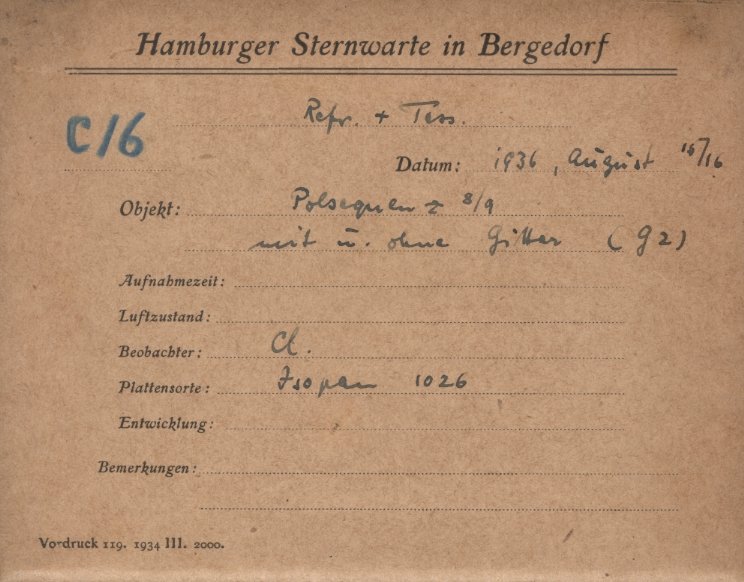 Hamburger Sternwarte in Bergedorf
C16
Refr. + Tess.
Datum: 1936, August 15/16
Objekt: Polsequenz 8/9
mit u. ohne Gitter (G2)
Aufnahmezeit:
Luftzustand:
Beobachter: Cl.
Plattensorte: Isopan 1026
Entwicklung:
Bemerkungen:
Vordruck 119. 1934 III. 2000.